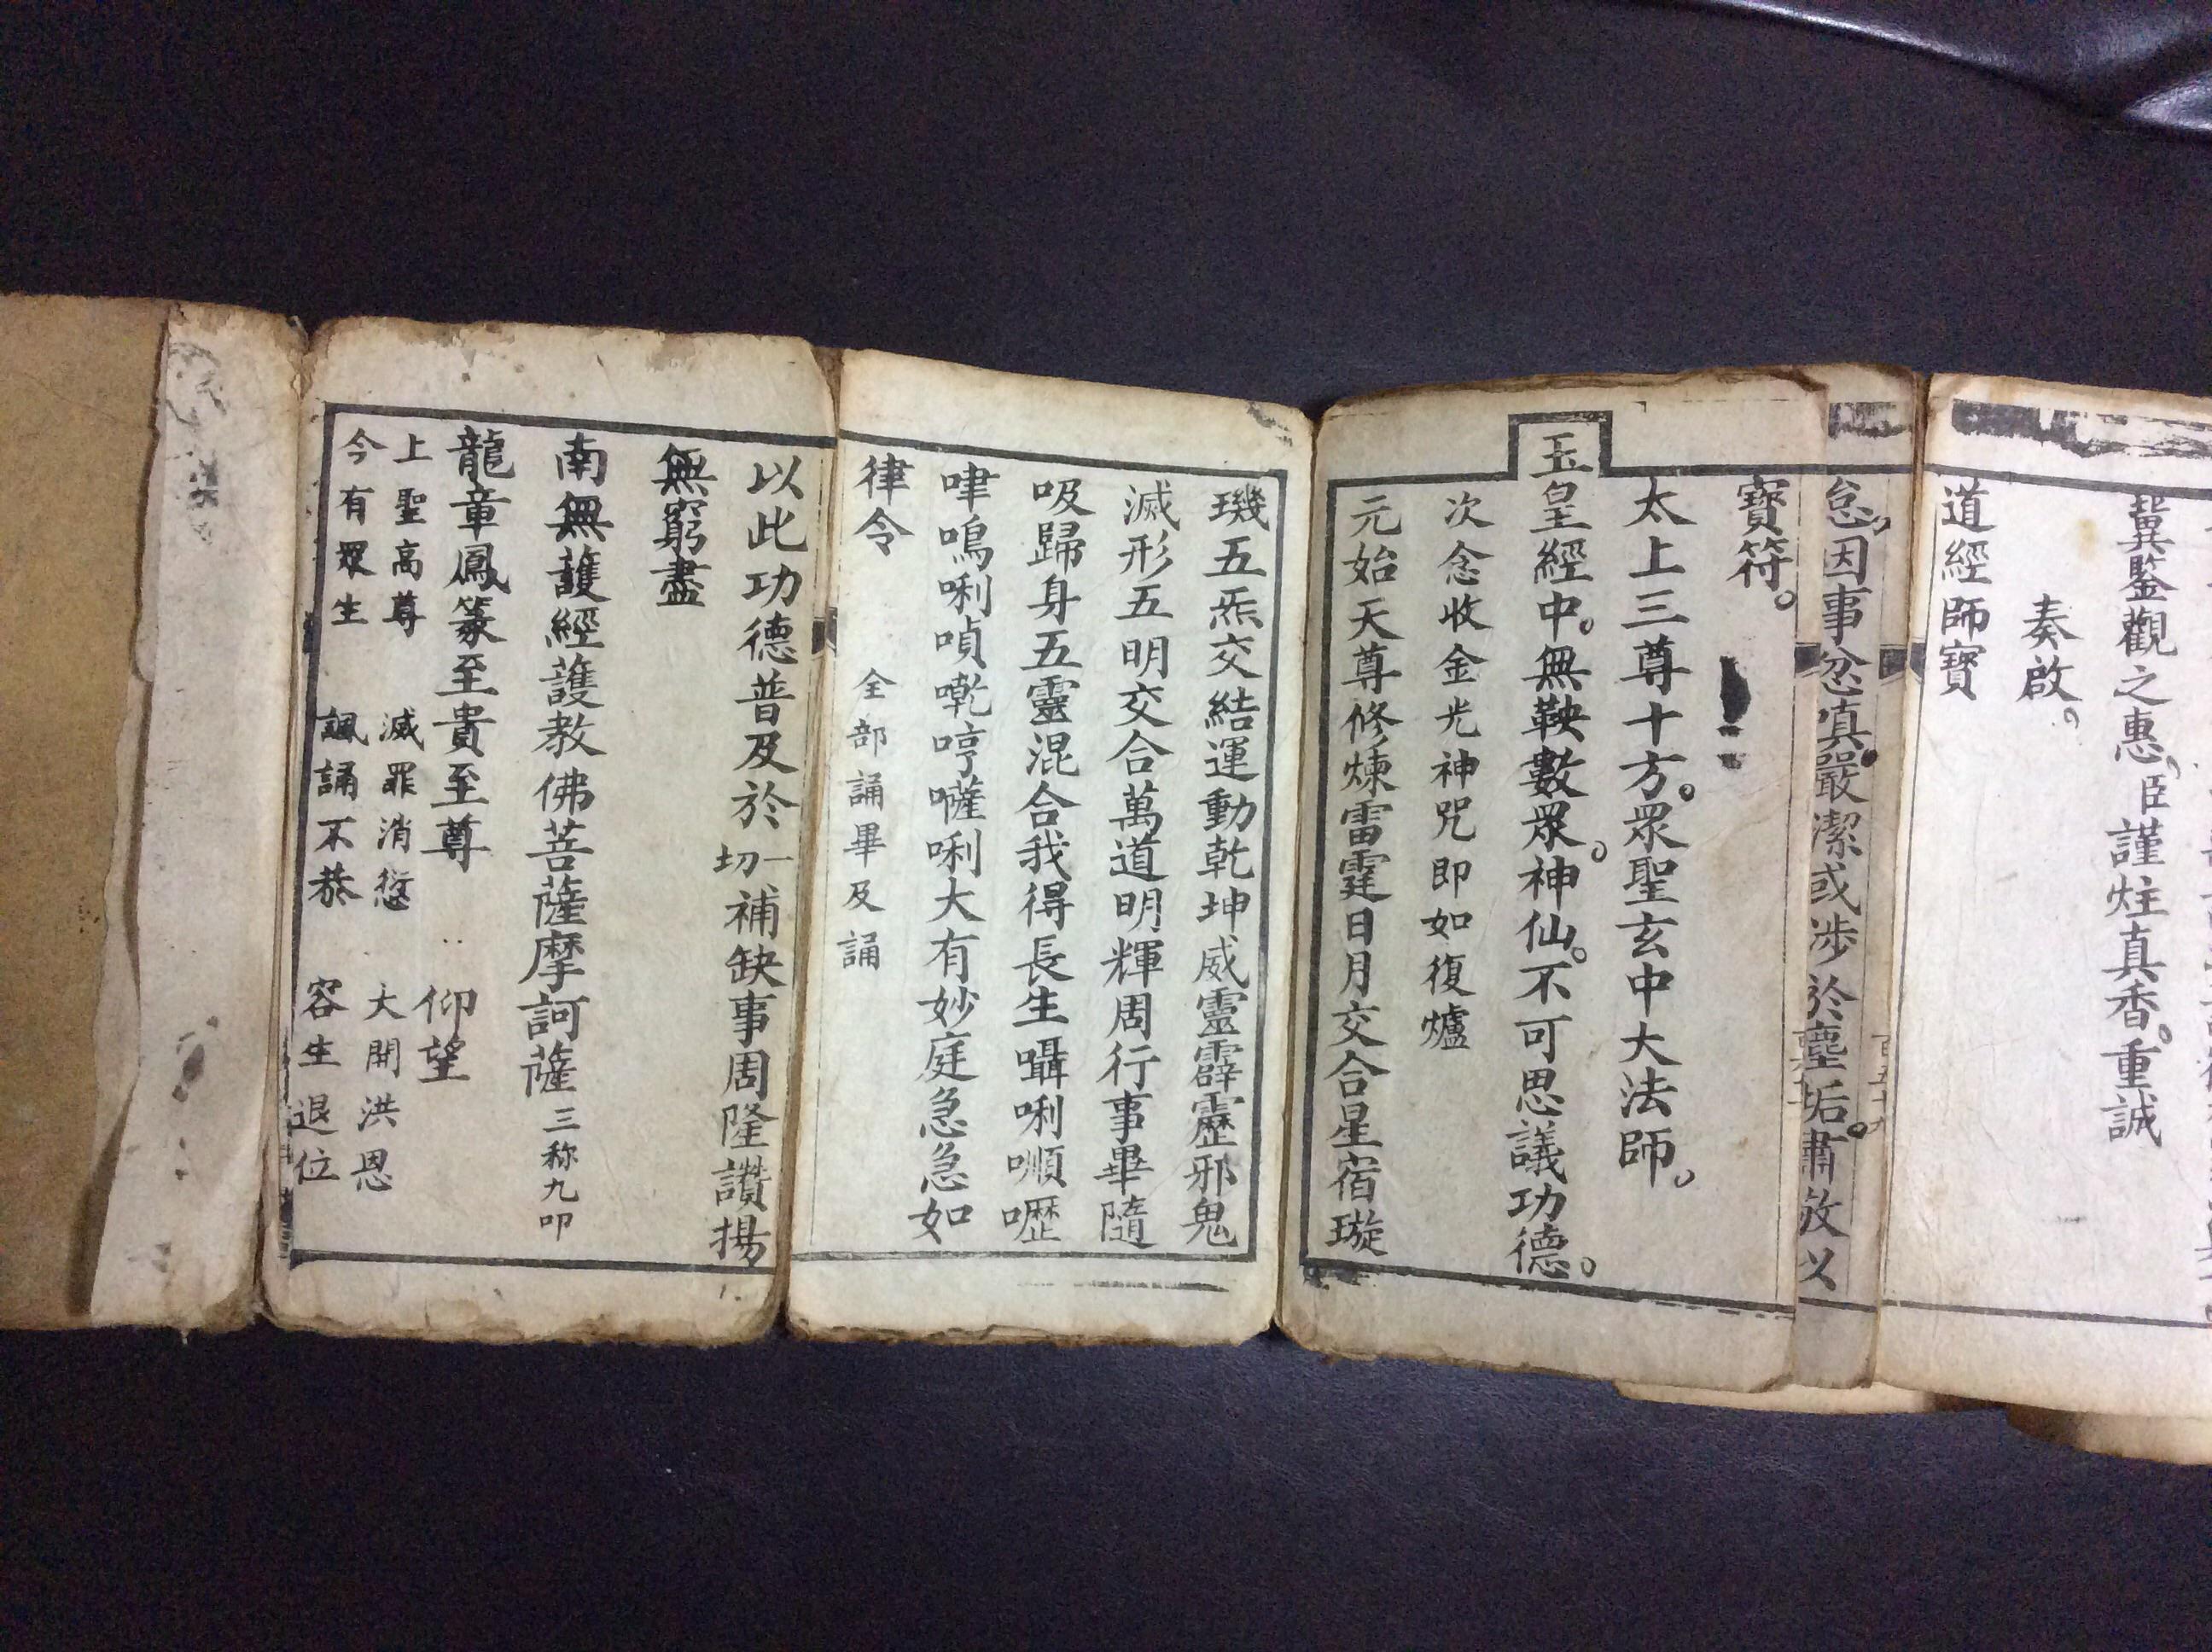 冀鑒觀之惠臣謹炷真香。重誠
奏啟。
道經師寶
怠因事忿嗔嚴潔或涉於塵垢。肅攸以
寶符。
太上三尊十方。眾聖玄中大法師。
玉皇經中。無鞅數眾。神仙。不可思議功德。
次念收金光神咒即如復爐
元始天尊修煉雷霆日月交合星宿璇
璣五炁交結運動乾坤威靈霹靂邪鬼
滅形五明交合萬道明輝周行事畢隨
吸歸身五靈混合我得長生囁唎㘈嚦
㗚嗚唎嗊㘋哼㘔唎大有妙庭急急如
律令 全部誦畢及誦
以此功德普及於一切補缺事周隆讚揚
無窮盡
南無護經護教佛菩薩摩訶薩 三称九叩
龍章鳳篆至貴至尊 仰望
上聖高尊 滅罪消愆 大開洪恩
今有眾生 諷誦不恭 容生退位